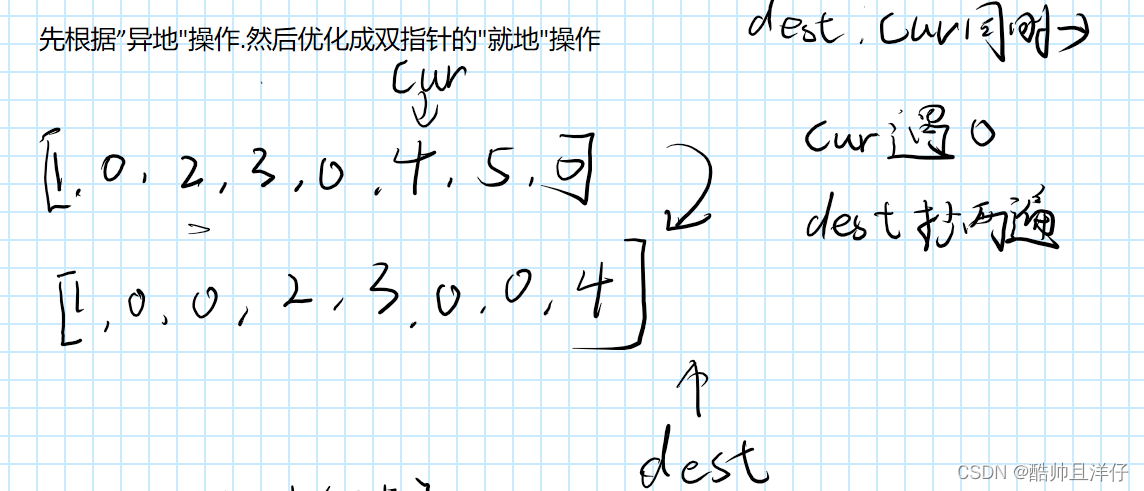 先根据”异地"操作.然后优化成双指针的"就地"操作
dest.Cur同时→
Cur
[1.0.2,3,0.4.5.0]
Cur遇0
dest抄两遍
[1,0,0,2,3.0,0,4]
dest
CSDN @酷帅且洋仔